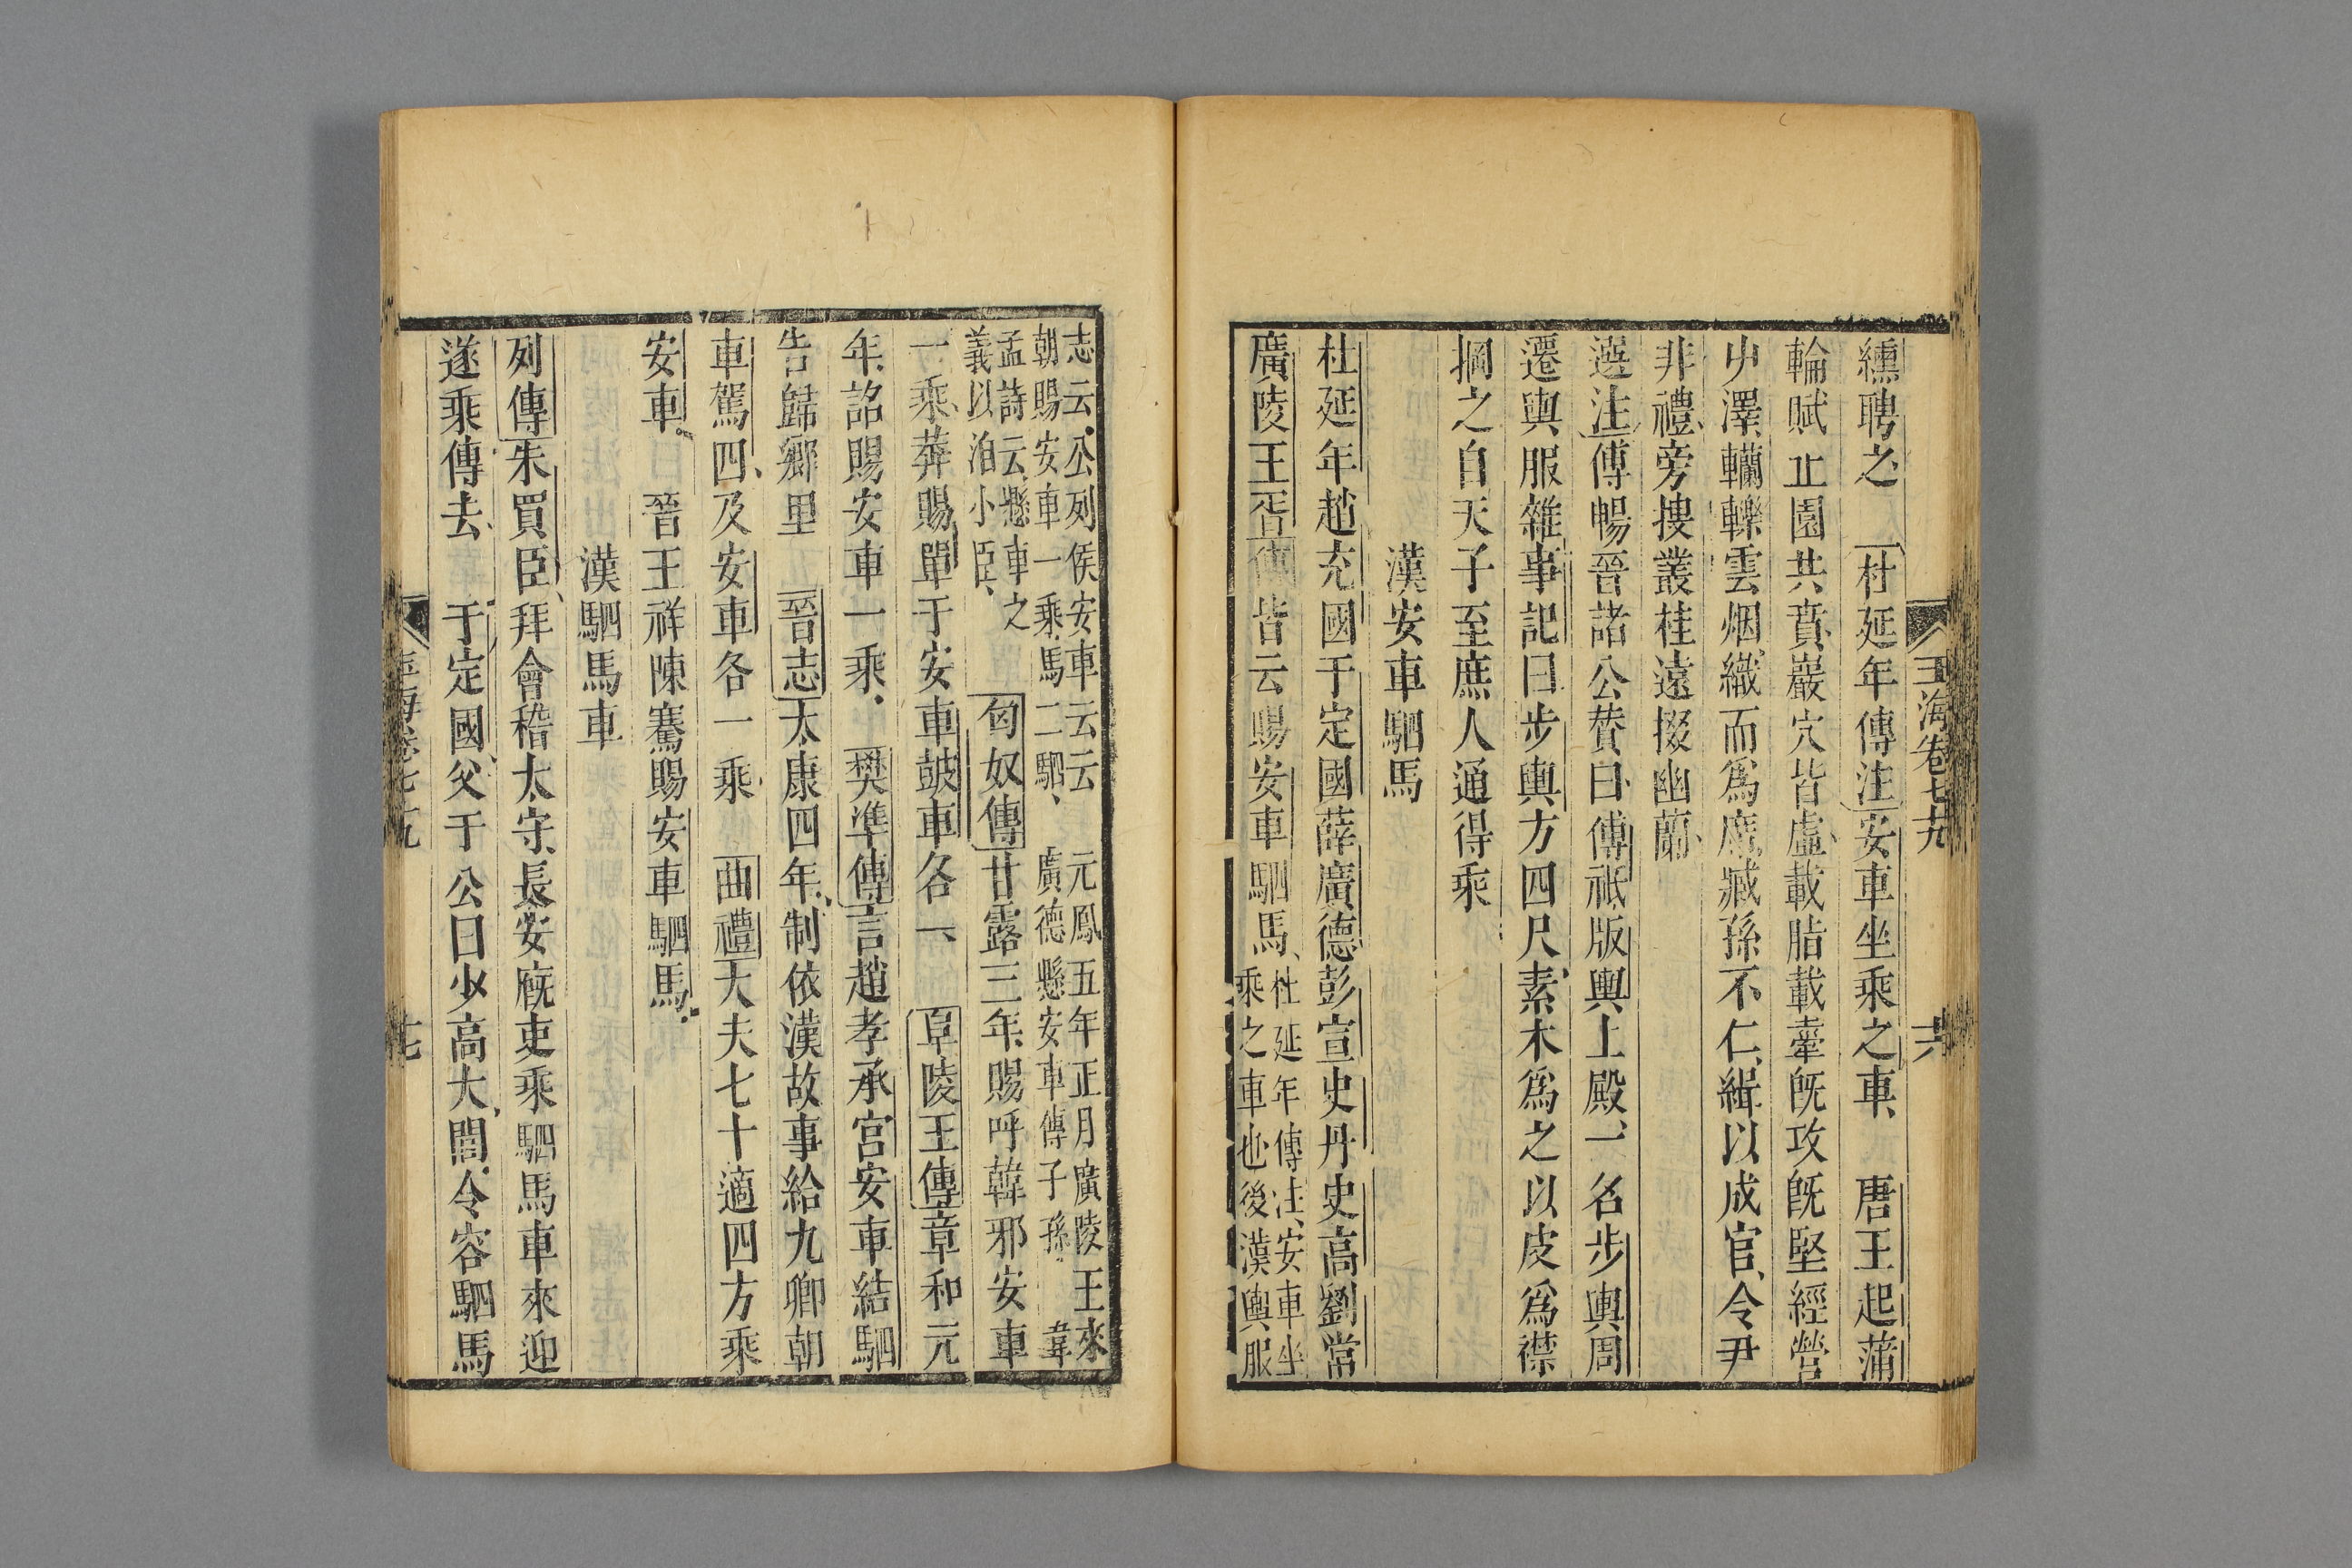 玉海卷七十九 十六
纁聘之 杜延年傳注安車坐乘之車 唐王起蒲
輪賦丘園共賁巖穴皆虛載脂載舝旣攻旣堅經營
屮澤轥轢雲烟織而爲席臧孫不仁緝以成官令尹
非禮旁捜叢桂遠掇幽蘭
選注傅暢晉諸公贊曰傅祗版輿上殿一名步輿周
遷輿服雜事記曰步輿方四尺素木爲之以皮爲襻
掆之自天子至庶人通得乘
漢安車駟馬
杜延年趙充國于定國薛廣德彭宣史丹史高劉常
廣陵王胥傳皆云賜安車駟馬
杜延年傳注安車坐
乘之車也後漢輿服
志云公列侯安車云云 元鳳五年正月廣陵王來
朝賜安車一乘馬二駟 廣德懸安車傳子孫 韋
孟詩云懸車之
義以洎小臣
匈奴傳甘露三年賜呼韓邪安車
一乘莽賜單于安車鼓車各一 阜陵王傳章和元
年詔賜安車一乘 樊準傳言趙孝承宮安車結駟
告歸鄉里 晉志太康四年制依漢故事給九卿朝
車駕四及安車各一乘 曲禮大夫七十適四方乘
安車 晉王祥陳騫賜安車駟馬
漢駟馬車
列傳朱買臣拜會稽太守長安廐吏乘駟馬車來迎
遂乘傳去 于定國父于公曰少高大閭令容駟馬
玉海卷七十九 十七